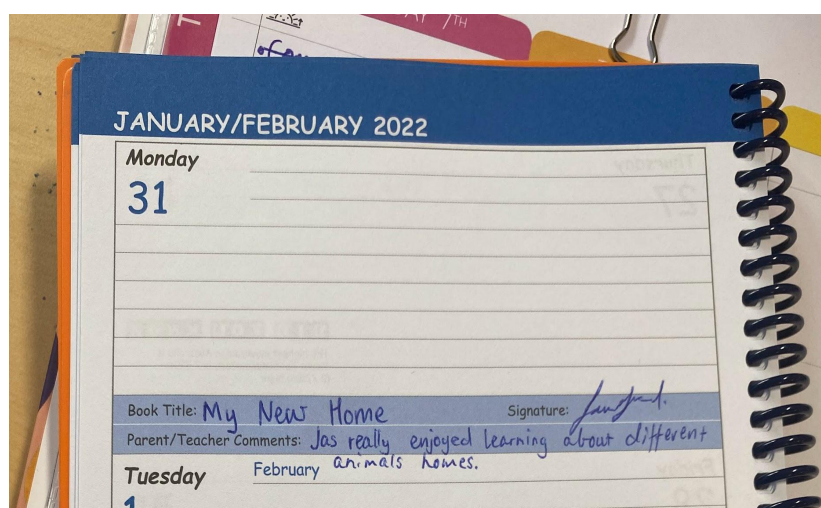 TH
JANUARY/FEBRUARY 2022
Monday
31
Thursday
27
Book Title: My New Home Signature:
Parent/Teacher Comments: Jas really enjoyed learning about different
animals homes.
Tuesday February
1
Friday
28